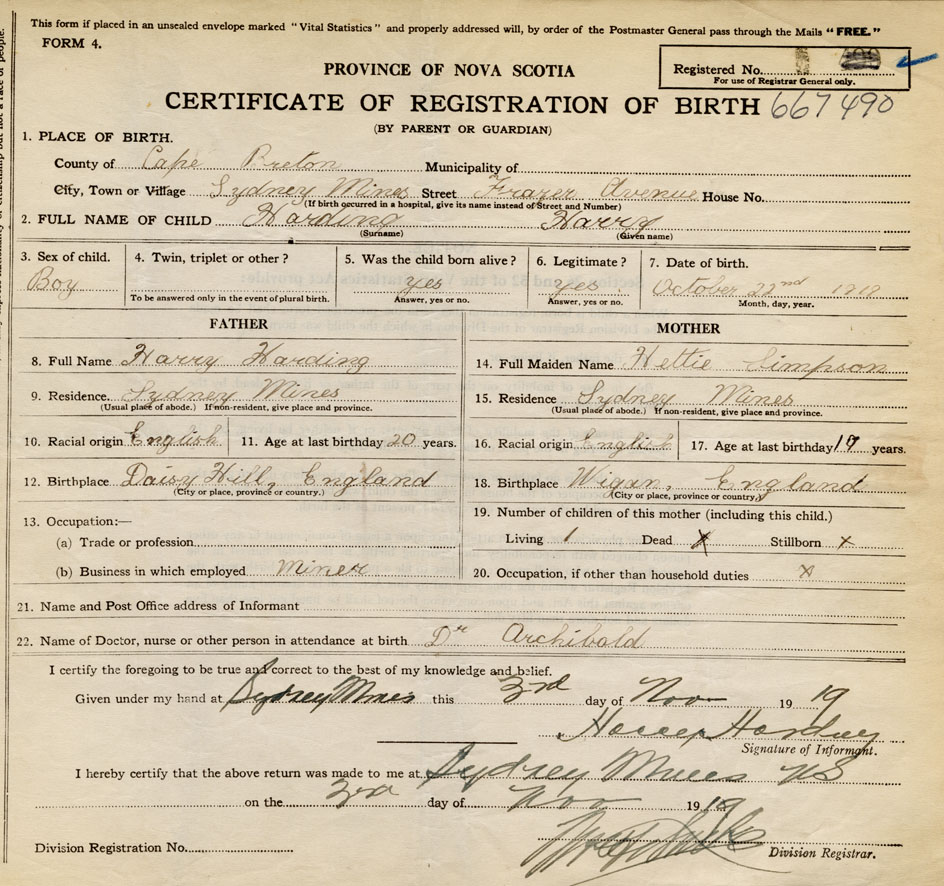 This form if placed in an unsealed envelope marked "Vital Statistics" and properly addressed will, by order of the Postmaster General pass through the Mails "FREE."
FORM 4.
Registered No.
For use of Registrar General only.
PROVINCE OF NOVA SCOTIA
CERTIFICATE OF REGISTRATION OF BIRTH 667490
(BY PARENT OR GUARDIAN)
1. PLACE OF BIRTH.
County of Cape Breton Municipality of
City, Town or Village Sydney Mines Street Frazer Avenue House No.
(If birth occurred in a hospital, give its name instead of Street and Number)
2. FULL NAME OF CHILD Harding Harry
(Surname) (Given name)
3. Sex of child. 4. Twin, triplet or other? 5. Was the child born alive? 6. Legitimate? 7. Date of birth.
Boy yes yes October 22nd
To be answered only in the event of plural birth. Answer, yes or no. Answer, yes or no. Month, day, year.
FATHER MOTHER
8. Full Name Harry Harding 14. Full Maiden Name Hettie Simpson
9. Residence. Sydney Mines 15. Residence Sydney Mines
(Usual place of abode.) If non-resident, give place and province. (Usual place of abode.) If non-resident, give place and province.
10. Racial origin English 11. Age at last birthday 20 years. 16. Racial origin English 17. Age at last birthday 19 years.
12. Birthplace Daisy Hill, England 18. Birthplace Wigan, England
(City or place, province or country.) (City or place, province or country.)
13. Occupation:— 19. Number of children of this mother (including this child.)
(a) Trade or profession Living 1 Dead x Stillborn x
(b) Business in which employed Miner 20. Occupation, if other than household duties x
21. Name and Post Office address of Informant
22. Name of Doctor, nurse or other person in attendance at birth Dr Archibald
I certify the foregoing to be true and correct to the best of my knowledge and belief.
Given under my hand at Sydney Mines this 3rd day of Nov 1919
Harry Harding
Signature of Informant.
I hereby certify that the above return was made to me at Sydney Mines NS
on the 3rd day of Nov 1919
Division Registration No. Division Registrar.